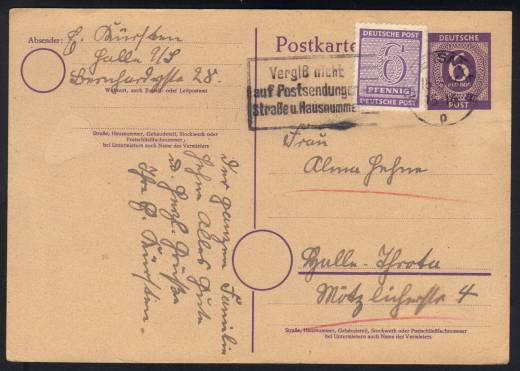 Absender: E. Kürsten
Halle a/S
Bernhardystr 28.
Wohnort, auch Zustell- oder Leitpostamt
Straße, Hausnummer, Gebäudeteil, Stockwerk oder
Postschließfachnummer;
bei Untermietern auch Name des Vermieters
Der ganzen Familie
Alles Gute
u. herzl. Grüße
Ihre E. Kürsten.
Postkarte
Vergiß nicht
auf Postsendungen
Straße u. Hausnummer
6
PFENNIG
DEUTSCHE POST
DEUTSCHE
6
POST
Frau
Alma Hehne
Halle-Throta
Mötzlicherstr 4
Straße, Hausnummer, Gebäudeteil, Stockwerk oder Postschließfachnummer
bei Untermietern auch Name des Vermieters